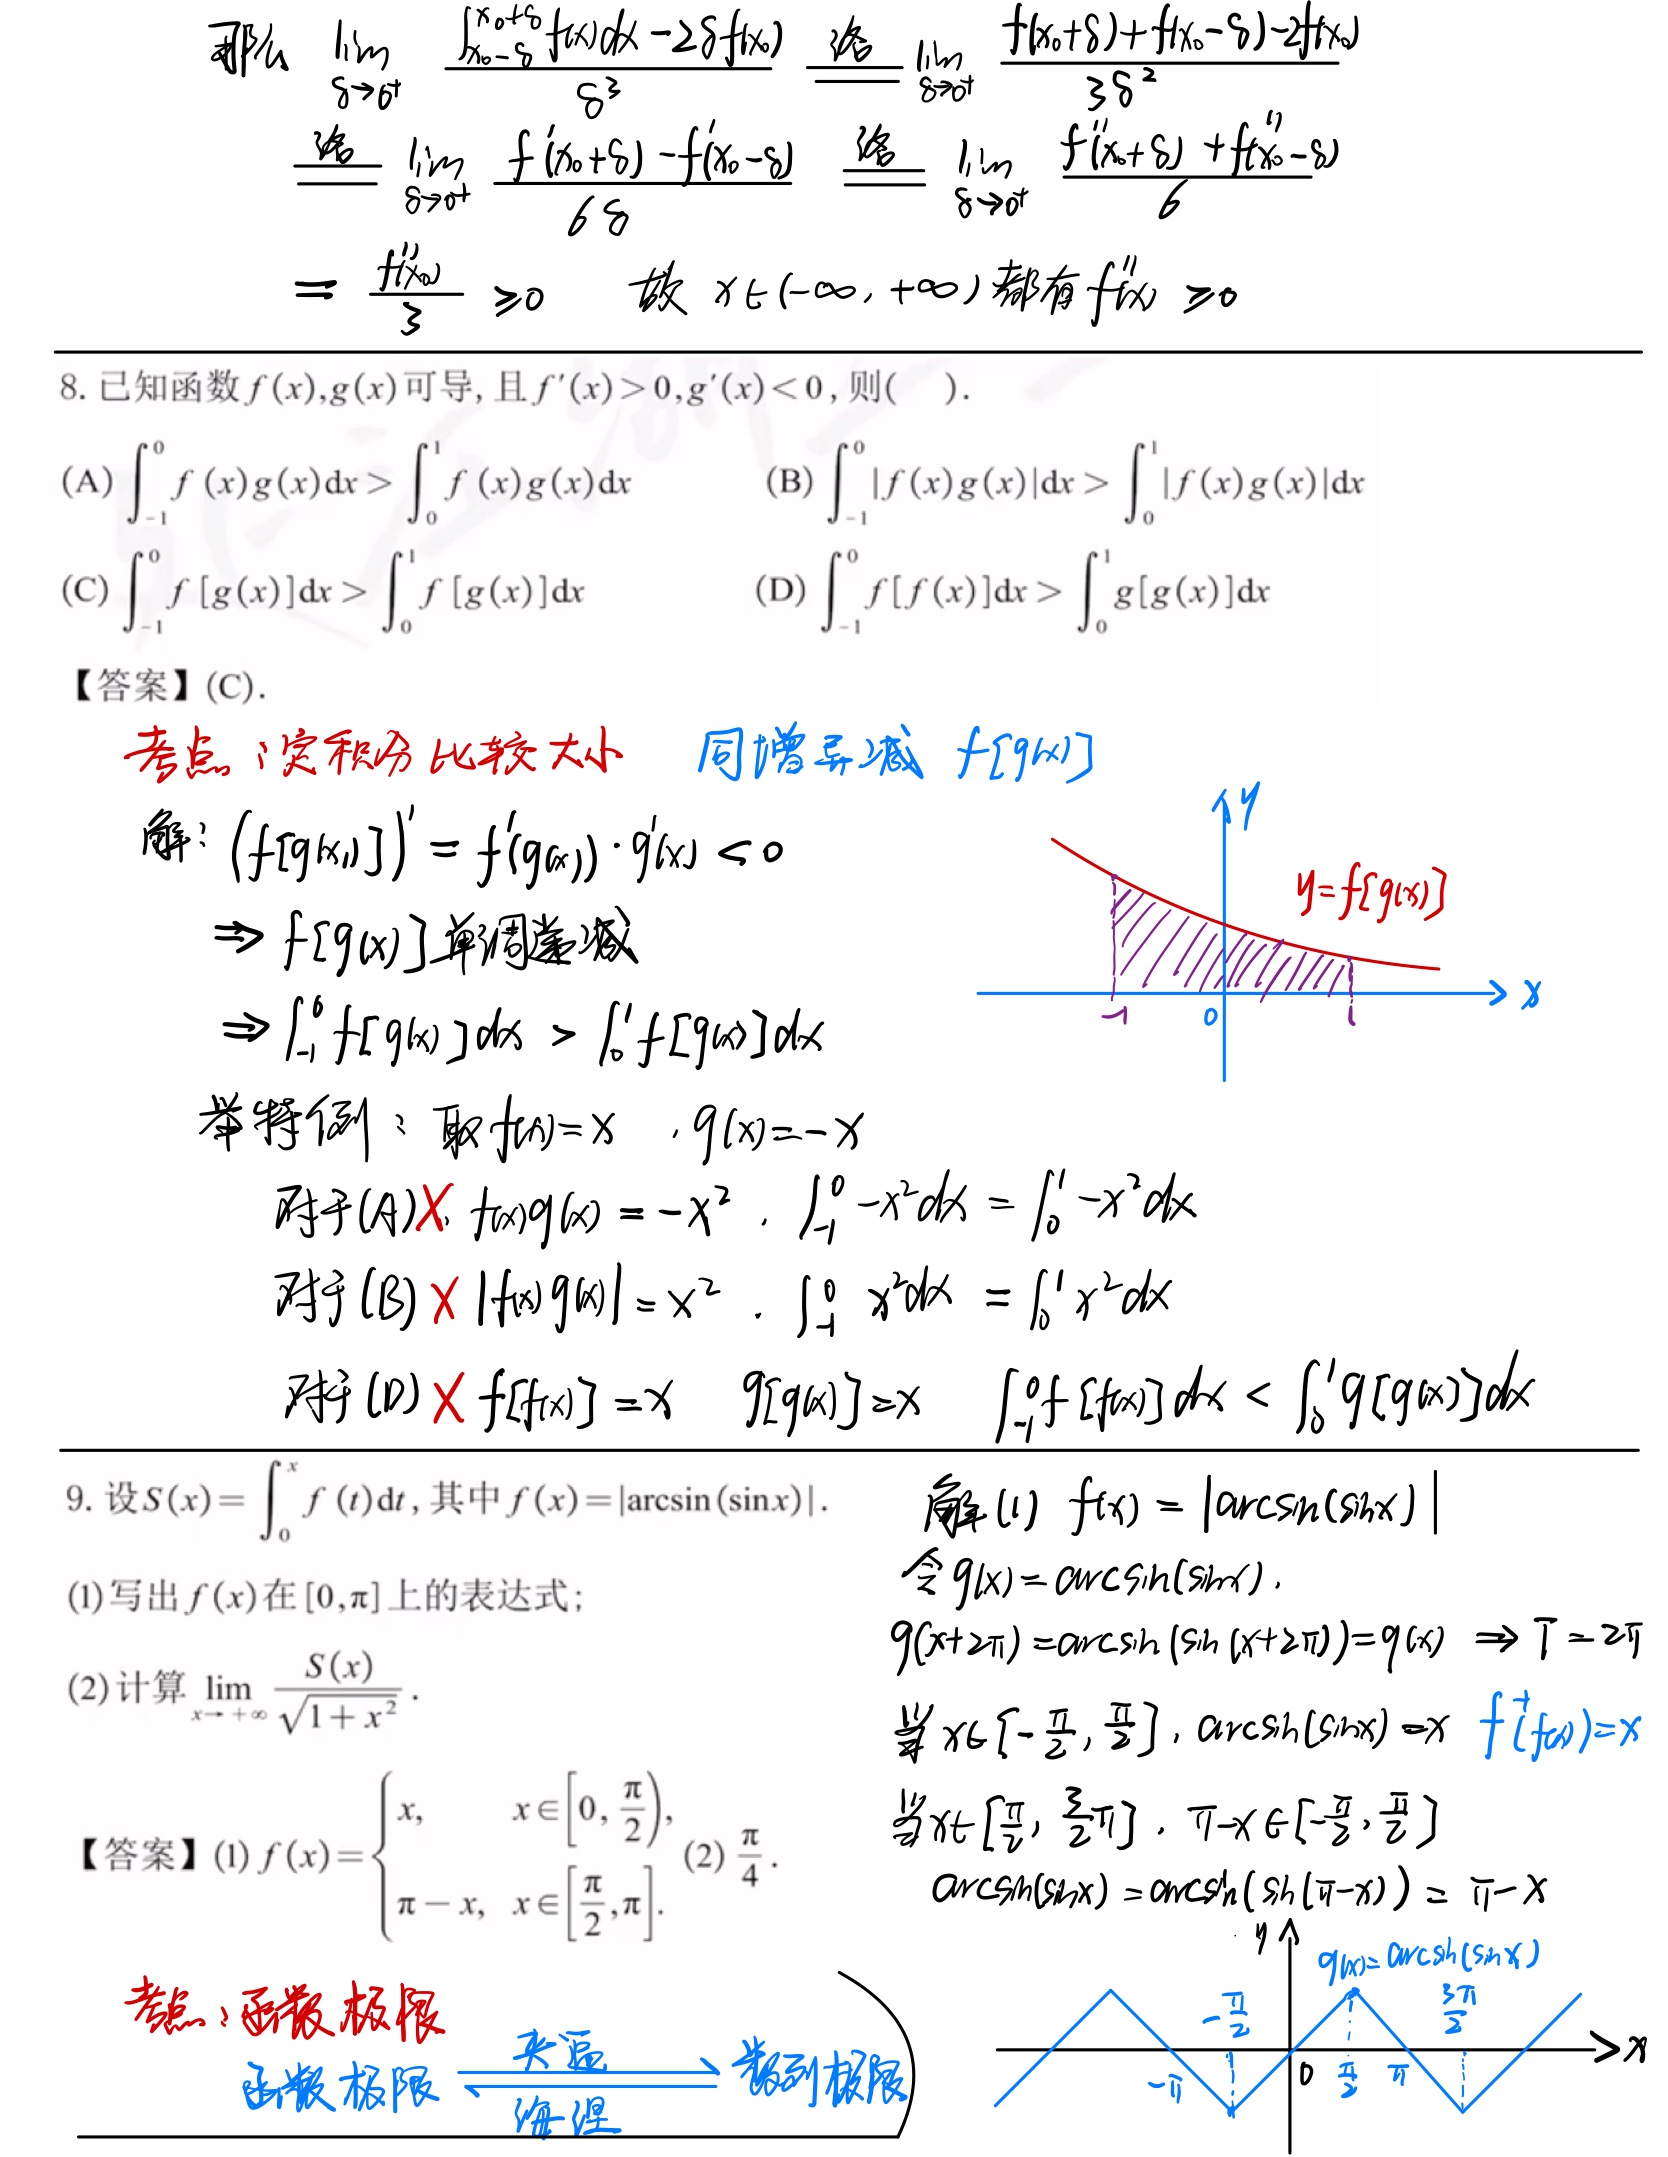 那么 lim_{δ→0⁺} (∫_{x₀-δ}^{x₀+δ} f(x)dx - 2δf(x₀))/δ³ ═(洛)═ lim_{δ→0⁺} (f(x₀+δ)+f(x₀-δ)-2f(x₀))/3δ²
═(洛)═ lim_{δ→0⁺} (f'(x₀+δ)-f'(x₀-δ))/6δ ═(洛)═ lim_{δ→0⁺} (f''(x₀+δ)+f''(x₀-δ))/6
= f''(x₀)/3 ≥0 故 x∈(-∞, +∞)都有f''(x) ≥0
8. 已知函数 f(x),g(x)可导,且 f′(x)>0,g′(x)<0,则( ).
(A) ∫_{-1}^{0} f(x)g(x)dx > ∫_{0}^{1} f(x)g(x)dx (B) ∫_{-1}^{0} |f(x)g(x)|dx > ∫_{0}^{1} |f(x)g(x)|dx
(C) ∫_{-1}^{0} f[g(x)]dx > ∫_{0}^{1} f[g(x)]dx (D) ∫_{-1}^{0} f[f(x)]dx > ∫_{0}^{1} g[g(x)]dx
【答案】(C).
考点:定积分比较大小 同增异减 f[g(x)]
解:(f[g(x)])' = f'(g(x))·g'(x) <0
⇒ f[g(x)]单调递减
⇒ ∫_{-1}^{0} f[g(x)]dx > ∫_{0}^{1} f[g(x)]dx
y
y=f[g(x)]
x
-1 0 1
举特例:取f(x)=x ,g(x)=-x
对于(A)X. f(x)g(x) = -x² . ∫_{-1}^{0} -x²dx = ∫_{0}^{1} -x²dx
对于(B)X |f(x)g(x)|=x² . ∫_{-1}^{0} x²dx = ∫_{0}^{1} x²dx
对于(D)X f[f(x)]=x g[g(x)]=x ∫_{-1}^{0} f[f(x)]dx < ∫_{0}^{1} g[g(x)]dx
9. 设S(x)=∫_{0}^{x} f(t)dt,其中 f(x)=|arcsin(sinx)|.
(1)写出 f(x)在[0,π]上的表达式;
(2)计算 lim_{x→+∞} S(x)/√(1+x²).
【答案】(1) f(x)={x, x∈[0, π/2), π-x, x∈[π/2,π]. (2) π/4.
考点:函数极限
函数极限 夹逼 海涅 数列极限
解(1) f(x) = |arcsin(sinx)|
令g(x)=arcsin(sinx).
g(x+2π)=arcsin(sin(x+2π))=g(x) ⇒ T=2π
当x∈[-π/2, π/2], arcsin(sinx)=x f⁻¹(f(x))=x
当x∈[π/2, 3/2π]. π-x∈[-π/2, π/2]
arcsin(sinx)=arcsin(sin(π-x))= π-x
y
g(x)=arcsin(sinx)
-π/2 3π/2
x
-π 0 π/2 π